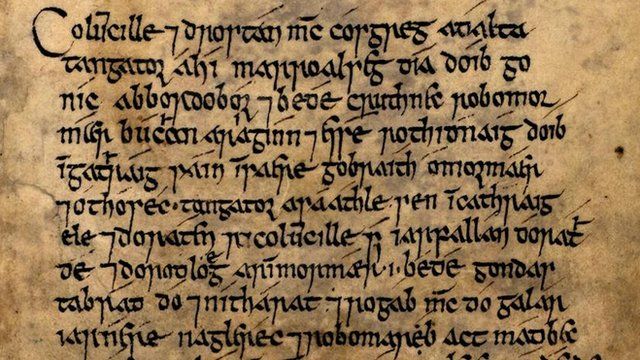 Colūcille ⁊ drostán mc̄ cosgreg adalta
tangator áhi marroalseg dia doib go
nic abbordoboir ⁊ béde cruthnec robomor
mær buchan araginn ⁊ esse rothidnaig doib
ingathraig sain insaere gobraith omormaer
⁊ othosec. tangator asaathle sen incathraig
ele ⁊ doraten ricolūcille si iarfallan dorath
de ⁊ dorodloeg arinmormær .i. bede gondas
tabrad do ⁊ nitharat ⁊ rogab mc̄ do galar
iarnere naglerec ⁊ robomareb act madbec